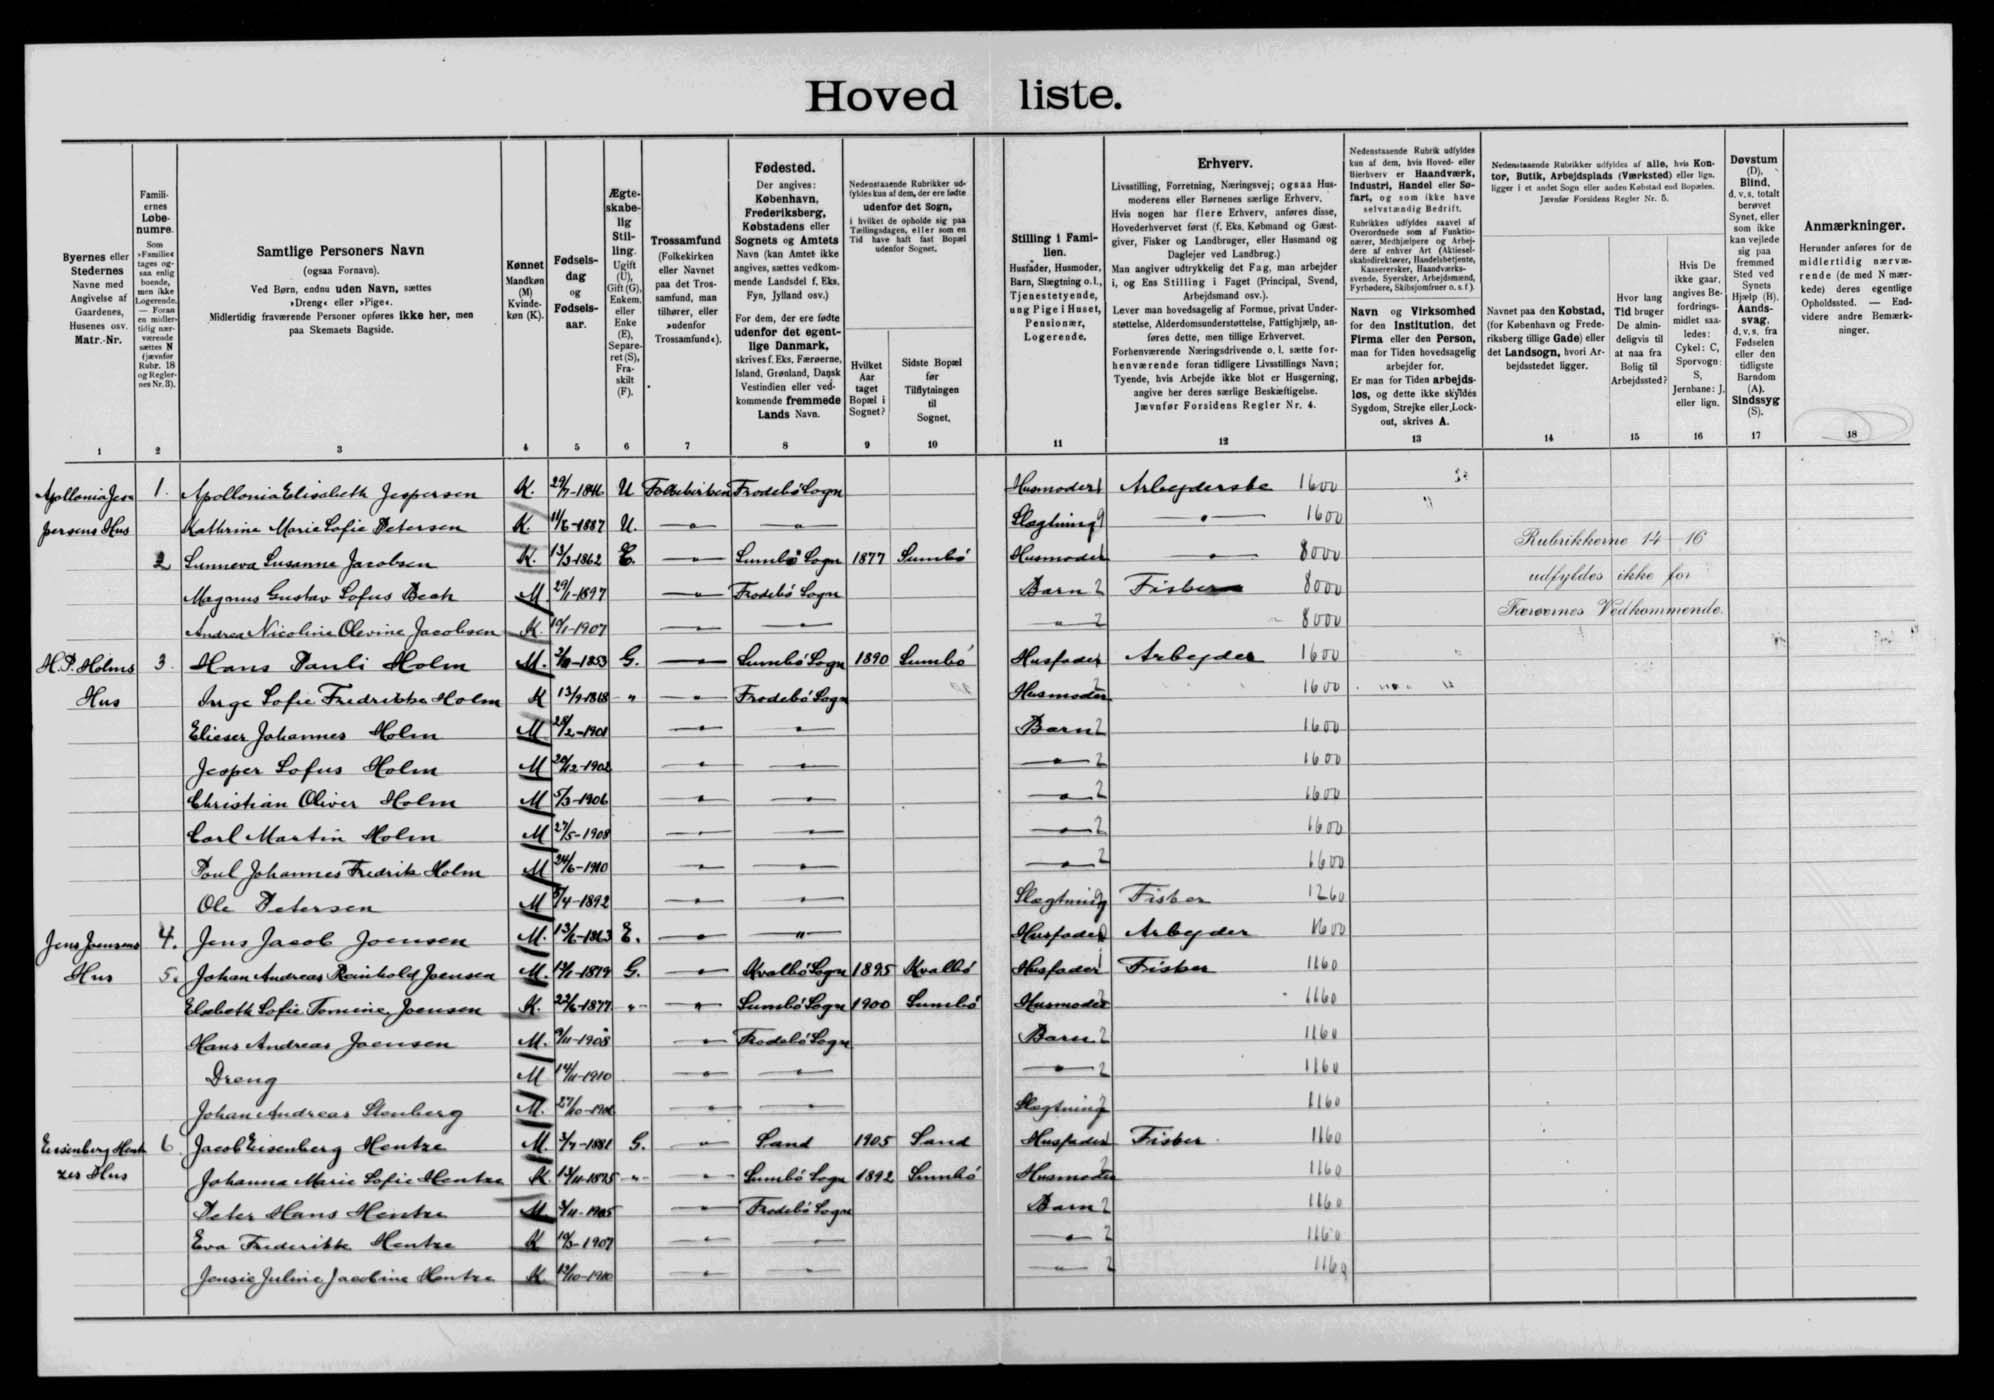 Hovedliste.
Byernes eller Stedernes Navne med Angivelse af Gaardenes, Husenes osv. Matr.-Nr.
Familiernes Løbenumre. Som »Familie« tages ogsaa enlig boende, men ikke Logerende. — Foran en midlertidig nærværende sættes N (jævnfør Rubr. 18 og Regler­nes Nr. 3).
Samtlige Personers Navn
(ogsaa Fornavn).
Ved Børn, endnu uden Navn, sættes »Dreng« eller »Pige«.
Midlertidig fraværende Personer opføres ikke her, men paa Skemaets Bagside.
Kønnet Mandkøn (M) Kvindekøn (K).
Fødselsdag og Fødselsaar.
Ægteskabelig Stilling. Ugift (U), Gift (G), Enkem. eller Enke (E), Separeret (S), Fraskilt (F).
Trossamfund (Folkekirken eller Navnet paa det Trossamfund, man tilhører, eller »udenfor Trossamfund«).
Fødested.
Der angives: København, Frederiksberg, Købstadens eller Sognets og Amtets Navn (kan Amtet ikke angives, sættes vedkommende Landsdel f. Eks. Fyn, Jylland osv.)
For dem, der ere fødte udenfor det egentlige Danmark, skrives f. Eks. Færøerne, Island, Grønland, Dansk Vestindien eller vedkommende fremmede Lands Navn.
Nedenstaaende Rubrikker udfyldes kun af dem, der ere fødte udenfor det Sogn, i hvilket de opholde sig paa Tællingsdagen, eller som en Tid have haft fast Bopæl udenfor Sognet.
Hvilket Aar taget Bopæl i Sognet?
Sidste Bopæl før Tilflytningen til Sognet.
Stilling i Familien.
Husfader, Husmoder, Barn, Slægtning o.l., Tjenestetyende, ung Pige i Huset, Pensionær, Logerende.
Erhverv.
Livsstilling, Forretning, Næringsvej; ogsaa Husmoderens eller Børnenes særlige Erhverv.
Hvis nogen har flere Erhverv, anføres disse, Hovederhvervet først (f. Eks. Købmand og Gæstgiver, Fisker og Landbruger, eller Husmand og Daglejer ved Landbrug.)
Man angiver udtrykkelig det Fag, man arbejder i, og Ens Stilling i Faget (Principal, Svend, Arbejdsmand osv.).
Lever man hovedsagelig af Formue, privat Understøttelse, Alderdomsunderstøttelse, Fattighjælp, anføres dette, men tillige Erhvervet.
Forhenværende Næringsdrivende o. l. sætte forhenværende foran tidligere Livsstillings Navn; Tyende, hvis Arbejde ikke blot er Husgerning, angive her deres særlige Beskæftigelse.
Jævnfør Forsidens Regler Nr. 4.
Nedenstaaende Rubrik udfyldes kun af dem, hvis Hoved- eller Bierhverv er Haandværk, Industri, Handel eller Søfart, og som ikke have selvstændig Bedrift.
Rubrikken udfyldes saavel af Overordnede som af Funktionærer, Medhjælpere og Arbejdere af enhver Art (Aktieselskabsdirektører, Handelsbetjente, Kasserersker, Haandværkssvende, Syersker, Arbejdsmænd, Fyrbødere, Skibsjomfruer o. s. f.).
Navn og Virksomhed for den Institution, det Firma eller den Person, man for Tiden hovedsagelig arbejder for.
Er man for Tiden arbejdsløs, og dette ikke skyldes Sygdom, Strejke eller Lockout, skrives A.
Nedenstaaende Rubrikker udfyldes af alle, hvis Kontor, Butik, Arbejdsplads (Værksted) eller lign. ligger i et andet Sogn eller anden Købstad end Bopælen.
Jævnfør Forsidens Regler Nr. 5.
Navnet paa den Købstad, (for København og Frederiksberg tillige Gade) eller det Landsogn, hvori Arbejdsstedet ligger.
Hvor lang Tid bruger De almindeligvis til at naa fra Bolig til Arbejdssted?
Hvis De ikke gaar, angives Befordringsmidlet saaledes: Cykel: C, Sporvogn: S, Jernbane: J, eller lign.
Døvstum (D), Blind, d. v. s. totalt berøvet Synet, eller som ikke kan vejlede sig paa fremmed Sted ved Synets Hjælp (B). Aandssvag, d. v. s. fra Fødselen eller den tidligste Barndom (A). Sindssyg (S).
Anmærkninger.
Herunder anføres for de midlertidig nærværende (de med N mærkede) deres egentlige Opholdssted. — Endvidere andre Bemærkninger.
1 2 3 4 5 6 7 8 9 10 11 12 13 14 15 16 17 18
Apollonia Jes- 1. Apollonia Elisabeth Jespersen K. U Folkekirken Frodebø Sogn Husmoder Arbejderske 1600
persens Hus Kathrine Marie Sofie Petersen K. 11/6-1887 U. Slægtning 1600
2 Sunneva Susanne Jacobsen K. 13/3-1862 E. Sumbø Sogn 1877 Sumbø Husmoder 8000
Rubrikkerne 14-16
Magnus Gustav Sofus Bech M. 29/1-1897 Frodebø Sogn Barn 2 Fisker 8000
udfyldes ikke for
Andrea Nicoline Olevine Jacobsen K. 19/1-1907 2 8000
Færøernes Vedkommende.
H. P. Holms 3. Hans Pauli Holm M. G. Sumbø Sogn 1890 Sumbø Husfader Arbejder 1600
Hus Inge Sofie Fredrikke Holm K 13/9-1868 " Frodebø Sogn Husmoder 1600
Elieser Johannes Holm M 28/2-1901 Barn 2 1600
Jesper Sofus Holm M 20/12-1902 2 1600
Christian Oliver Holm M 5/3-1906 2 1600
Carl Martin Holm M 27/5-1908 2 1600
Poul Johannes Fredrik Holm M 24/6-1910 2 1600
Ole Petersen M 5/4-1892 Slægtning Fisker 1260
Jens Joensens 4. Jens Jacob Joensen M. 13/6-1863 E. " Husfader Arbejder 1600
Hus 5. Johan Andreas Reinhold Joensen M. G. Kvalbø Sogn 1895 Kvalbø Husfader Fisker 1160
Elsebeth Sofie Tomine Joensen K. 22/6-1877 " Sumbø Sogn 1900 Sumbø Husmoder 1160
Hans Andreas Joensen M. 9/11-1908 Frodebø Sogn Barn 2 1160
Dreng M 14/11-1910 2 1160
Johan Andreas Stenberg M. Slægtning 1160
Eisenberg Hent- 6. Jacob Eisenberg Hentze M. 3/7-1881 G. Sand 1905 Sand Husfader Fisker 1160
zes Hus Johanna Marie Sofie Hentze K. 13/11-1875 " Sumbø Sogn 1892 Sumbø Husmoder 1160
Peter Hans Hentze M. 3/11-1905 Frodebø Sogn Barn 2 1160
Eva Frederikke Hentze K 19/3-1907 2 1160
Jensie Juline Jacobine Hentze K 12/10-1910 2 1160